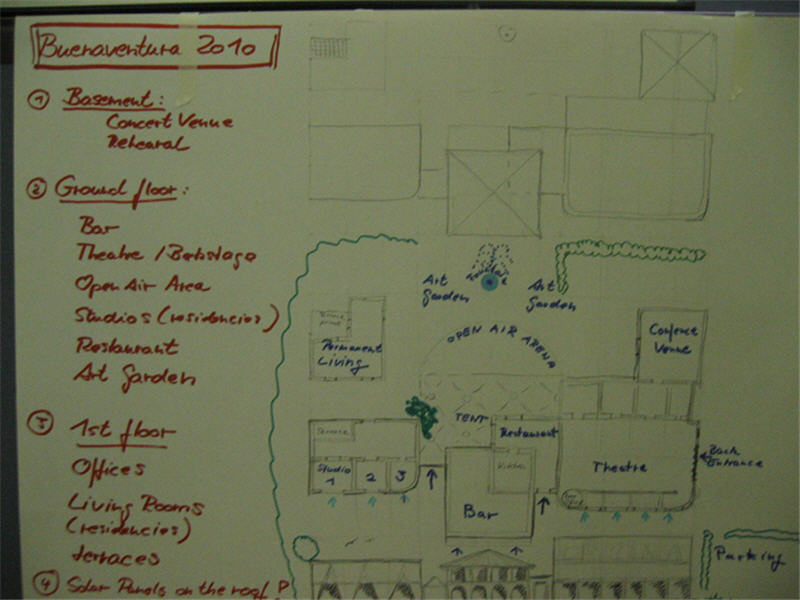 Buenaventura 2010
① Basement:
Concert Venue
Rehearal
② Ground floor:
Bar
Theatre / Backstage
Open Air Area
Studios (residencies)
Restaurant
Art Garden
③ 1st floor
Offices
Living Rooms
(residencies)
terraces
④ Solar Panels on the roof?
Art
Garden
Art
Garden
OPEN AIR ARENA
Permanent
Living
Venue
TENT
Restaurant
Kitchen
Terrace
Studio
1
2
3
Bar
Theatre
Back
Entrance
Parking